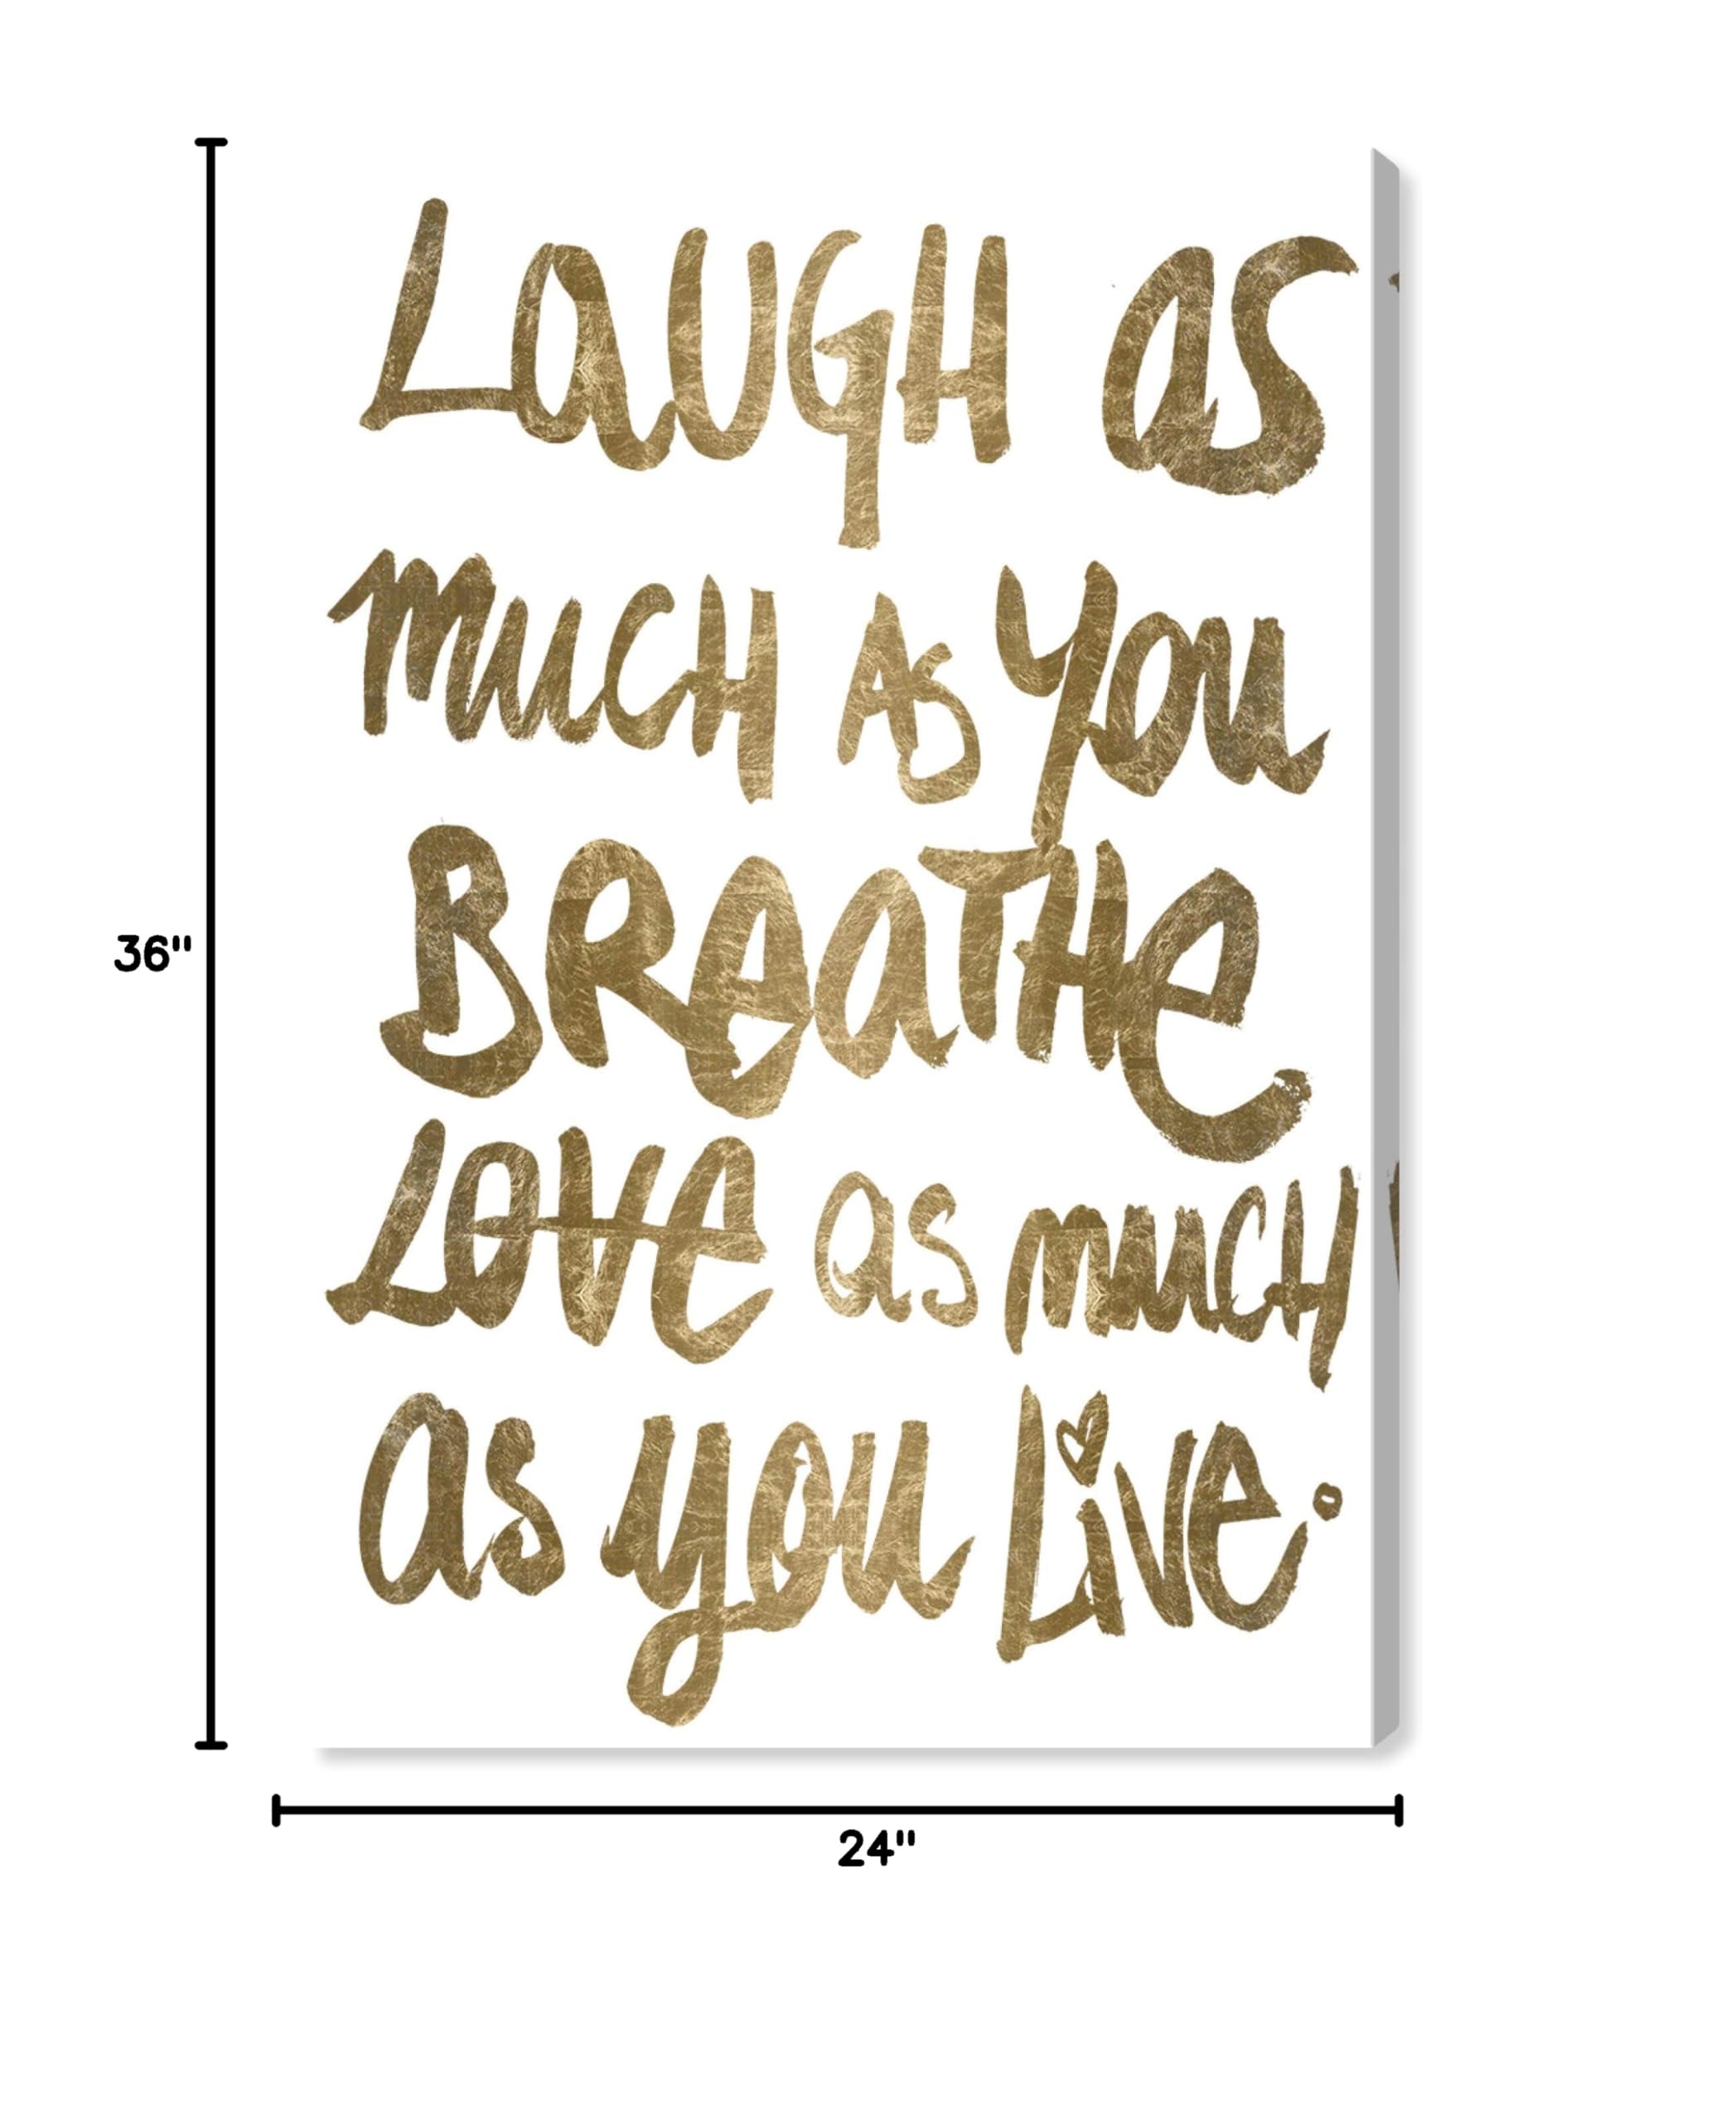 LaUGH as
mucH As you
BReaTHe
LOVe as mucH
as you LiVe.
36"
24"